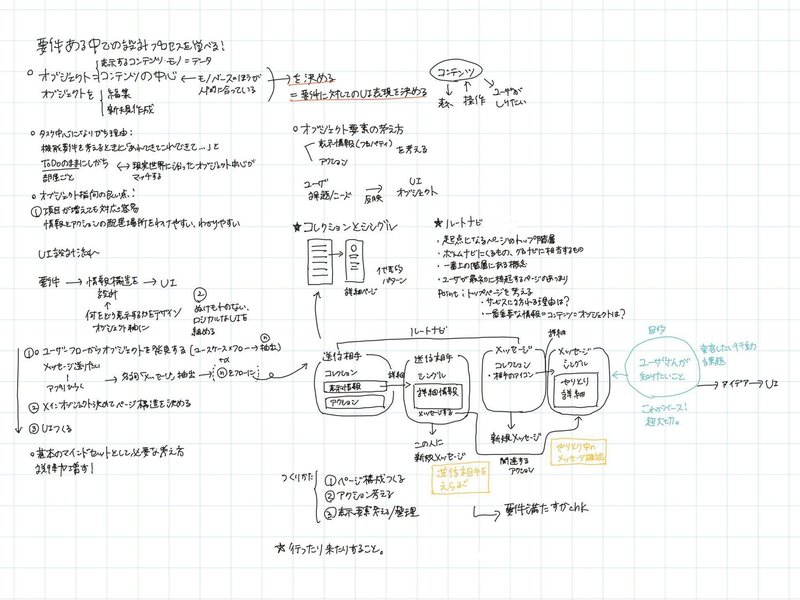 要件ある中での設計プロセスを学べる!
表示するコンテンツ・モノ=データ
○オブジェクト=コンテンツの中心 ← モノベースのほうが
人間に合っている
オブジェクトを
編集
新規作成
→を決める
=要件に対してのUI表現を決める
コンテンツ
表示
操作
ユーザーが
しりたい
○タスク中心になりがち理由:
機能要件を考えるときと「あれできてこれできて…」と
ToDoのままにしがち
部屋ごと
↔ 現実世界に沿ったオブジェクト中心が
マッチする
○オブジェクト指向の良い点:
①項目が増えても対応容易
情報とアクションの配置場所をわけやすい、わかりやすい
○オブジェクト要素の考え方
表示情報(プロパティ)
アクション
を考える
ユーザ
課題/ニーズ
→
反映
UI
オブジェクト
UI設計法へ
要件 → 情報構造を → UI
設計
何をどう表示するかをデザイン
オブジェクト軸に
②
ぬけもれのない、
ロジカルなUIを
組める
★コレクションとシングル
詳細ページ
パターン
★ルートナビ
・起点になるページのトップ階層
・ボトムナビにくるもの、グロナビに相当するもの
・一番上の階層にある概念
・ユーザが最初に接触するページのあつまり
Point:トップページを考える
・サービスに訪れる理由は?
・一番重要な情報=コンテンツ=オブジェクトは?
①○ユーザーフローからオブジェクトを発見する(ユースケース×フロー→抽出)
メッセージ送りたい
アプリひらく
→名詞「メッセージ」抽出→
②メインオブジェクト決めてページ構造を決める
③UIつくる
○基本のマインドセットとして必要な考え方
説得力増す!
ルートナビ
送信相手
コレクション
表示情報
アクション
詳細
送信相手
シングル
詳細情報
メッセージする
メッセージ
コレクション
・相手のアイコン
詳細
メッセージ
シングル
やりとり
詳細
この人に
新規メッセージ
新規メッセージ
関連する
アクション
送信相手を
えらぶ
やりとり中の
メッセージ確認
目的
ユーザさんが
知りたいこと
これがベース!
超大切。
→アイデア→UI
つくりかた
①ページ構成つくる
②アクション考える
③表示要素考える/整理
→要件満たすかchk
★行ったり来たりすること。